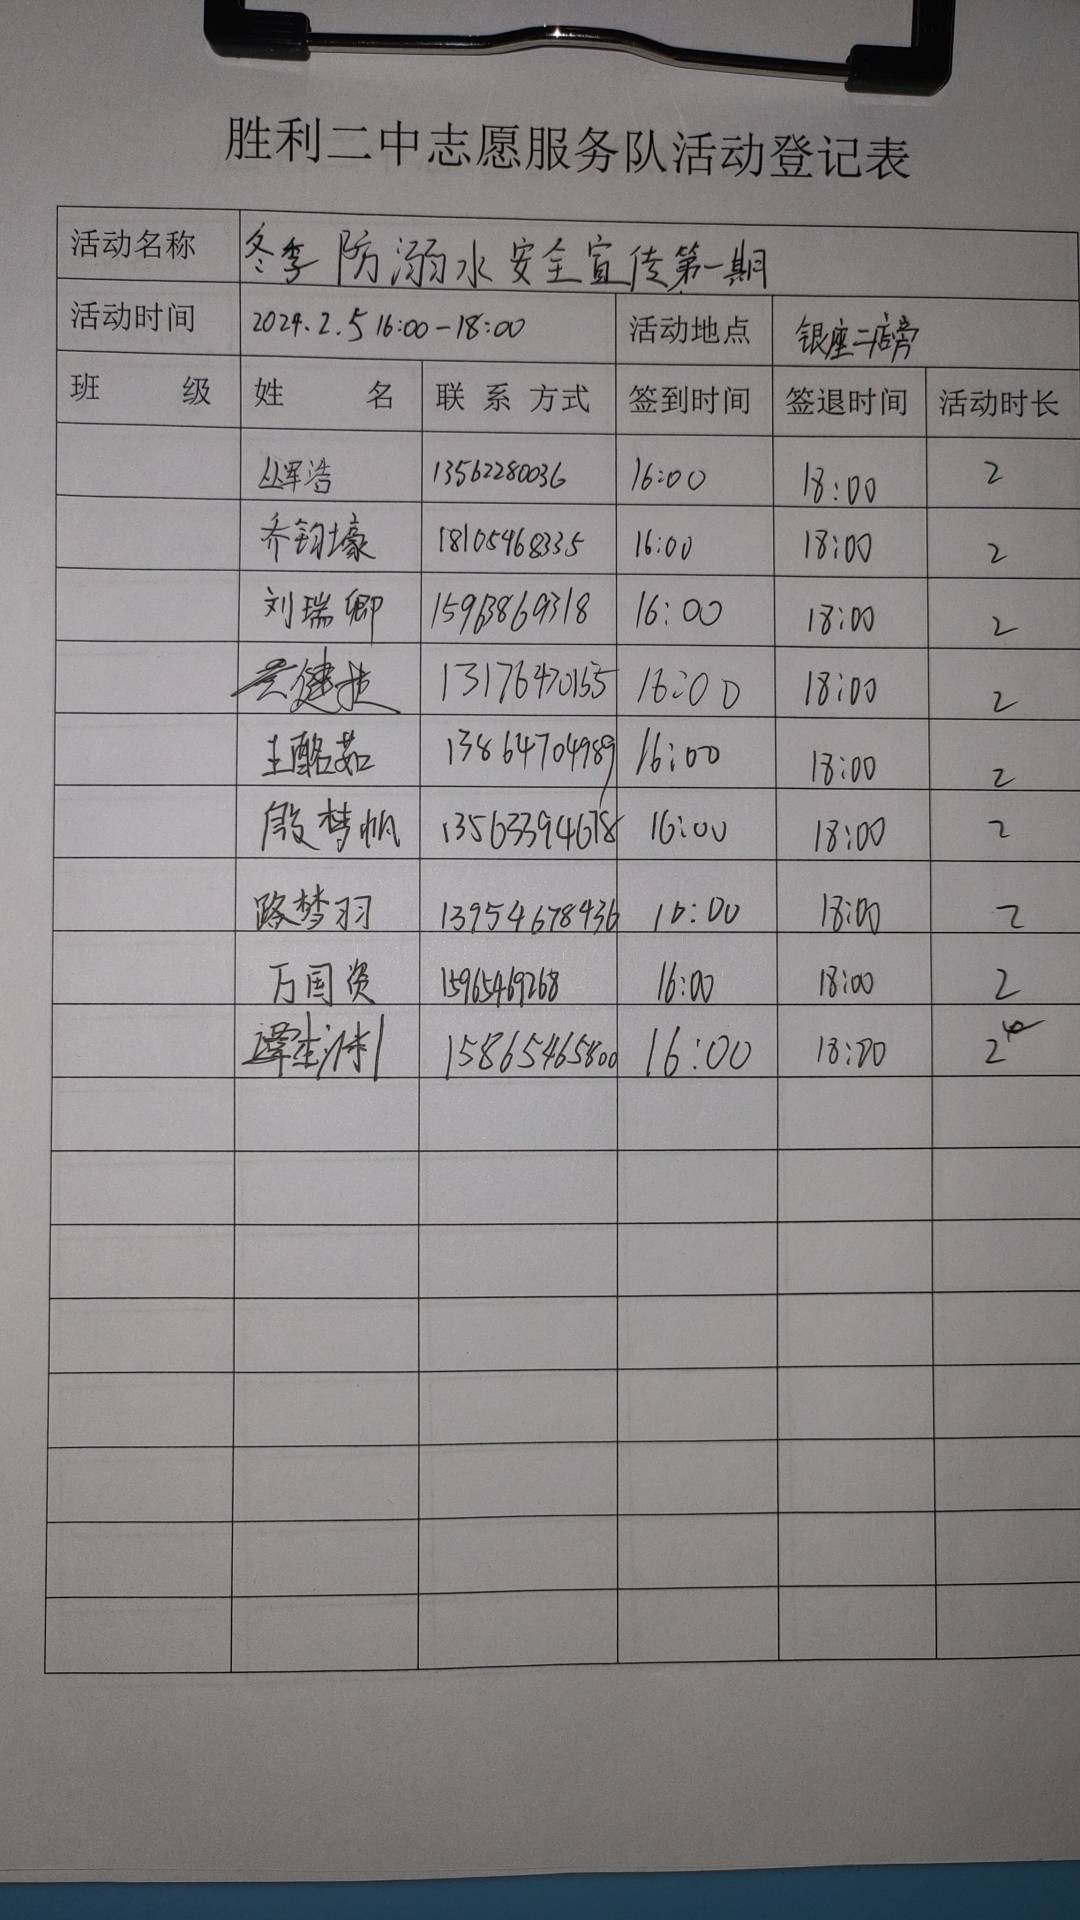 胜利二中志愿服务队活动登记表
活动名称 冬季防溺水安全宣传第一期
活动时间 2024.2.5 16:00-18:00 活动地点 银座二店旁
班 级 姓 名 联 系 方式 签到时间 签退时间 活动时长
丛军浩 13562280036 16:00 18:00 2
乔钧壕 18105468335 16:00 18:00 2
刘瑞卿 15963869318 16:00 18:00 2
13176470155 16:00 18:00 2
王酩茹 13864704989 16:00 18:00 2
殷梦帆 13563394678 16:00 18:00 2
路梦羽 13954678436 16:00 18:00 2
万国资 15965469268 16:00 18:00 2
15865465800 16:00 18:00 2